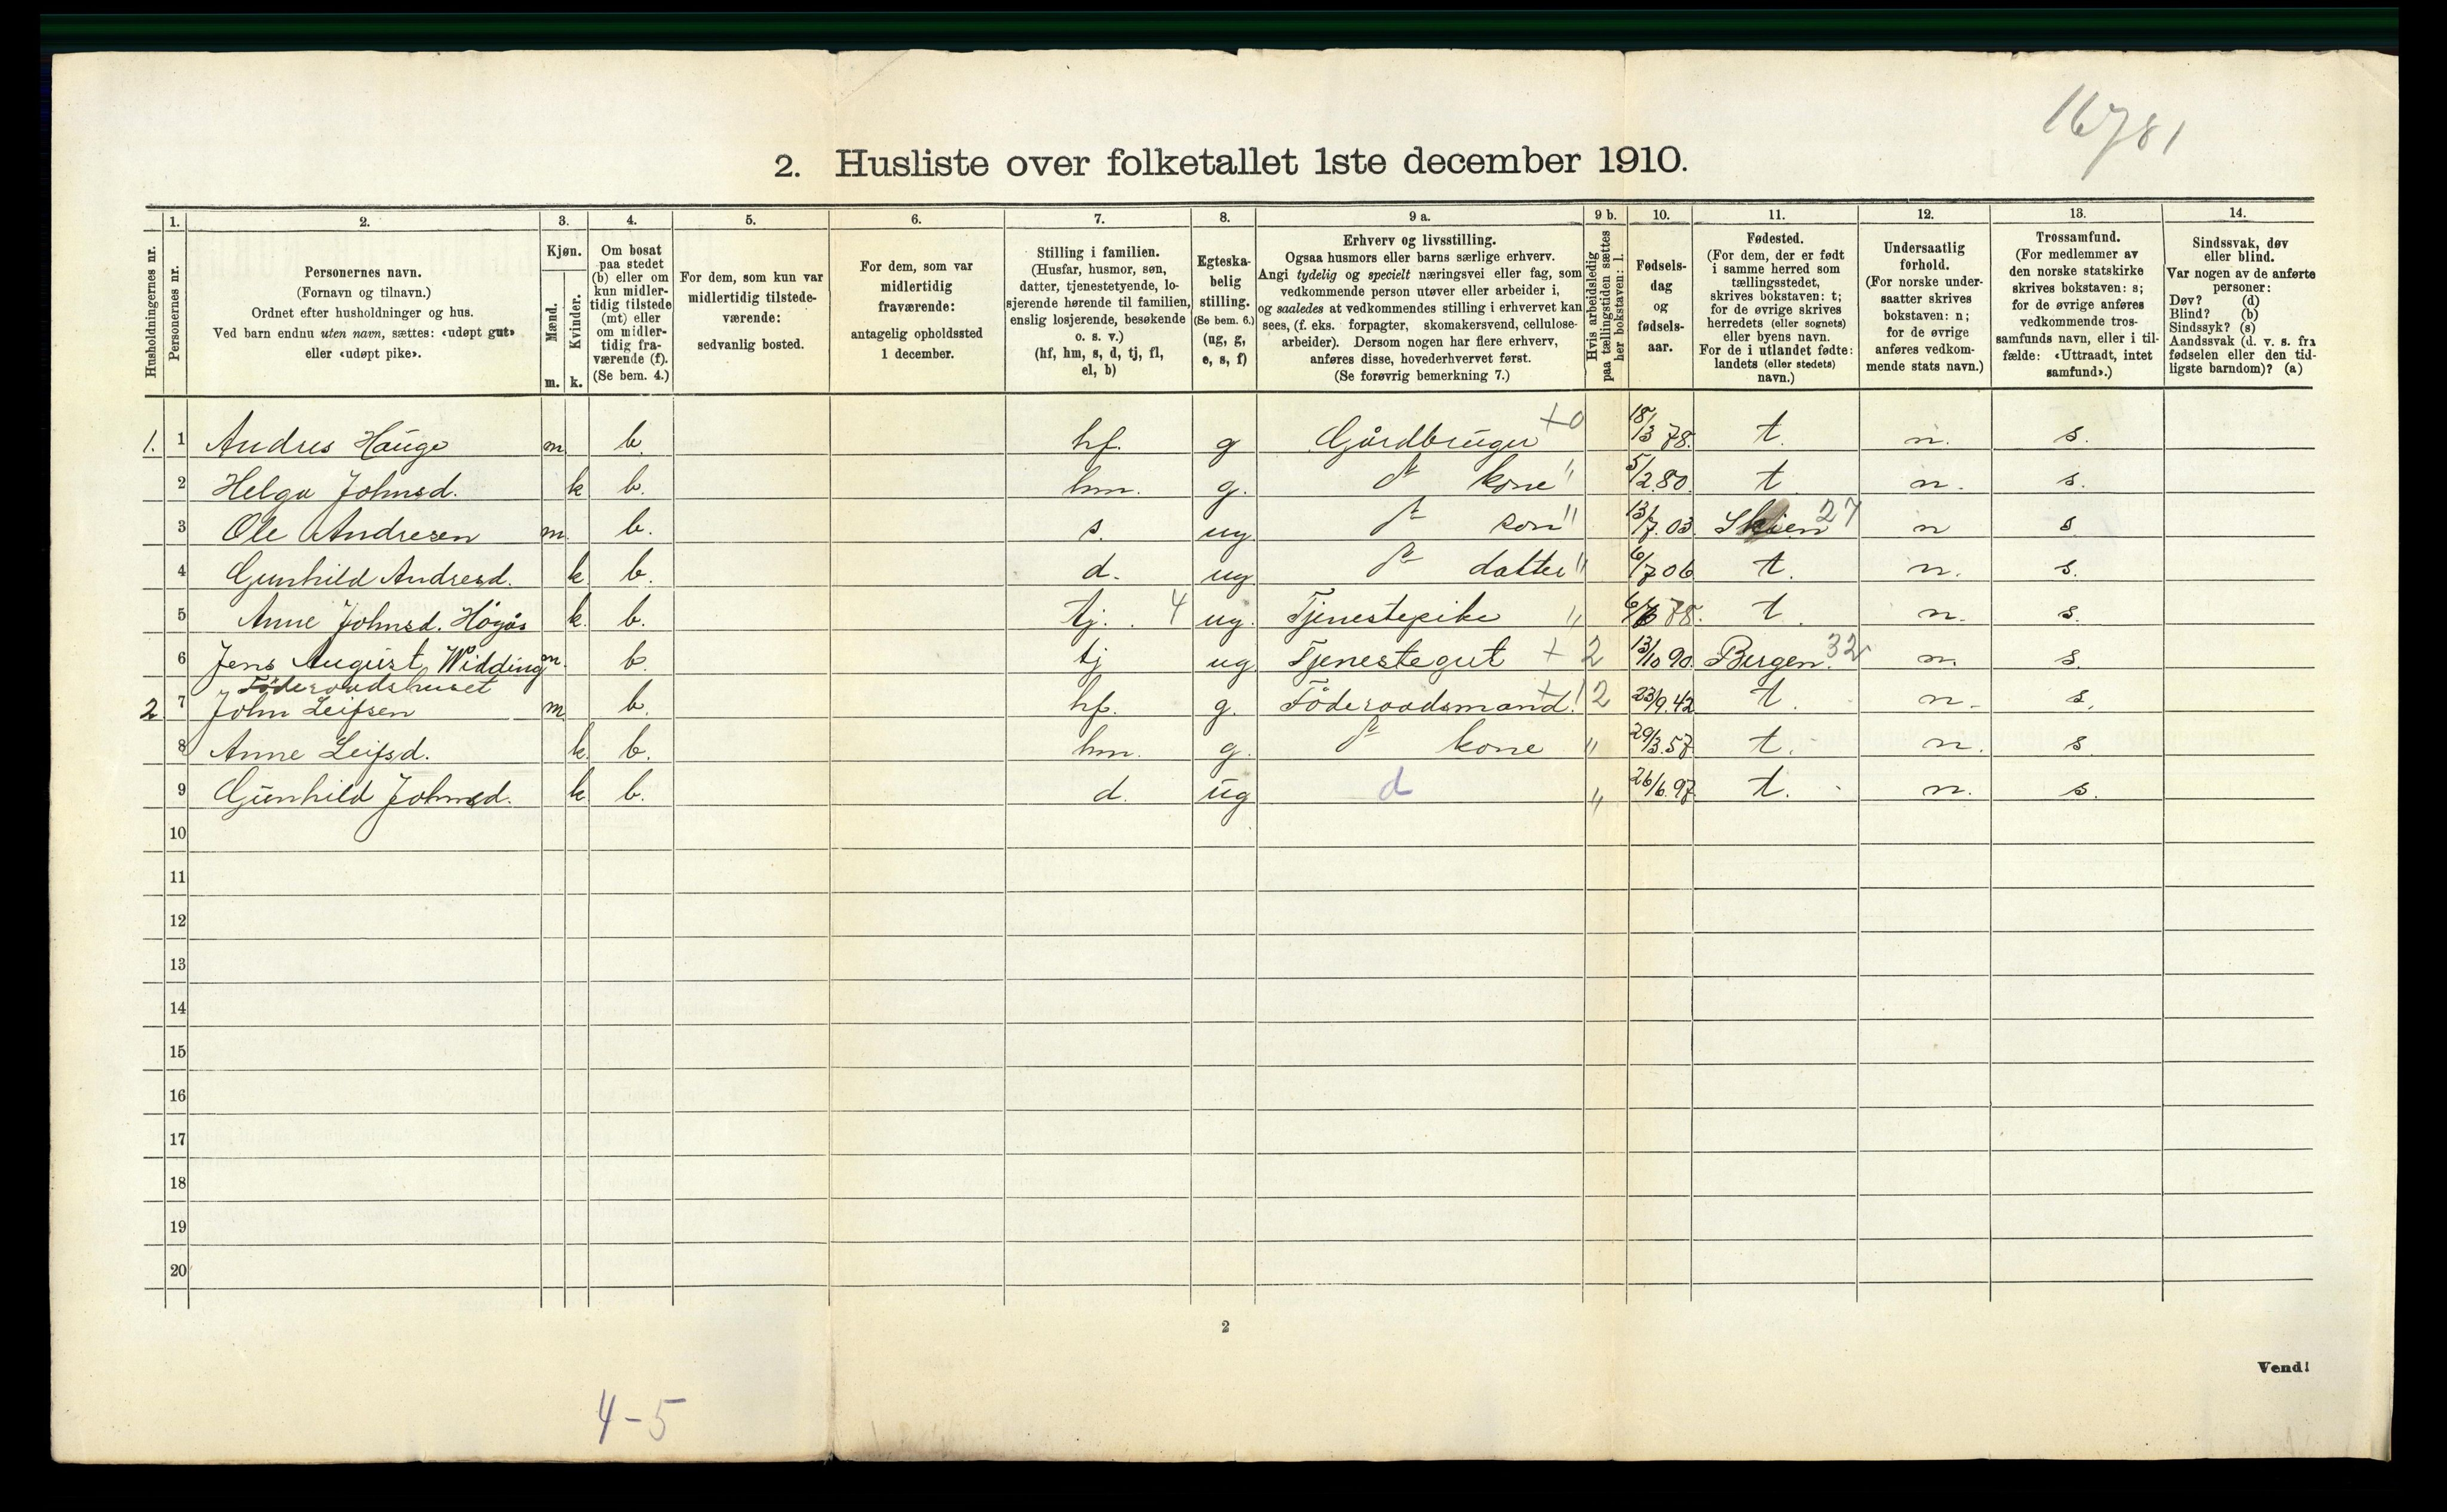 16781
2. Husliste over folketallet 1ste december 1910.
Husholdningernes nr.
1.
Personernes nr.
2.
Personernes navn.
(Fornavn og tilnavn.)
Ordnet efter husholdninger og hus.
Ved barn endnu uten navn, sættes: «udøpt gut»
eller «udøpt pike».
3.
Kjøn.
Mænd.
Kvinder.
m. k.
4.
Om bosat
paa stedet
(b) eller om
kun midler-
tidig tilstede
(mt) eller
om midler-
tidig fra-
værende (f).
(Se bem. 4.)
5.
For dem, som kun var
midlertidig tilstede-
værende:
sedvanlig bosted.
6.
For dem, som var
midlertidig
fraværende:
antagelig opholdssted
1 december.
7.
Stilling i familien.
(Husfar, husmor, søn,
datter, tjenestetyende, lo-
sjerende hørende til familien,
enslig losjerende, besøkende
o. s. v.)
(hf, hm, s, d, tj, fl,
el, b)
8.
Egteska-
belig
stilling.
(Se bem. 6.)
(ug, g,
e, s, f)
9 a.
Erhverv og livsstilling.
Ogsaa husmors eller barns særlige erhverv.
Angi tydelig og specielt næringsvei eller fag, som
vedkommende person utøver eller arbeider i,
og saaledes at vedkommendes stilling i erhvervet kan
sees, (f. eks. forpagter, skomakersvend, cellulose-
arbeider). Dersom nogen har flere erhverv,
anføres disse, hovederhvervet først.
(Se forøvrig bemerkning 7.)
9 b.
Hvis arbeidsledig
paa tællingstiden sættes
her bokstaven: l.
10.
Fødsels-
dag
og
fødsels-
aar.
11.
Fødested.
(For dem, der er født
i samme herred som
tællingsstedet,
skrives bokstaven: t;
for de øvrige skrives
herredets (eller sognets)
eller byens navn.
For de i utlandet fødte:
landets (eller stedets)
navn.)
12.
Undersaatlig
forhold.
(For norske under-
saatter skrives
bokstaven: n;
for de øvrige
anføres vedkom-
mende stats navn.)
13.
Trossamfund.
(For medlemmer av
den norske statskirke
skrives bokstaven: s;
for de øvrige anføres
vedkommende tros-
samfunds navn, eller i til-
fælde: «Uttraadt, intet
samfund».)
14.
Sindssvak, døv
eller blind.
Var nogen av de anførte
personer:
Døv? (d)
Blind? (b)
Sindssyk? (s)
Aandssvak (d. v. s. fra
fødselen eller den tid-
ligste barndom)? (a)
1. 1 Andres Hauge m b. hf. g Gårdbruger +0 18/13 78. t. n. s.
2 Helga Johnsd. k b. hm. g. dº kone " 5/2 80. t. n. s.
3 Ole Andresen m. b. s. ug. dº son " 13/7. 03. Skien 27 n s
4 Gunhild Andresd. k b. d. ug dº datter " 6/7 06 t. n. s.
5 Anne Johnsd. Högås k. b. tj. 4 ug. Tjenestepike " 78. t. n. s.
6 Jens August Widding m. b. tj ug Tjenestegut + 2 13/10 90. Bergen 32 n. s.
Föderaadshuset
2 7 John Leifsen m b. hf. g. Föderaadsmand. + 1 2 23/9. 42 t. n. s.
8 Anne Leifsd. k b. hm. g. dº kone " 29/3. 57 t. n. s
9 Gunhild Johnsd. k b. d. ug d " 26/6. 97 t. n. s.
10
11
12
13
14
15
16
17
18
19
20
2
Vend!
4-5